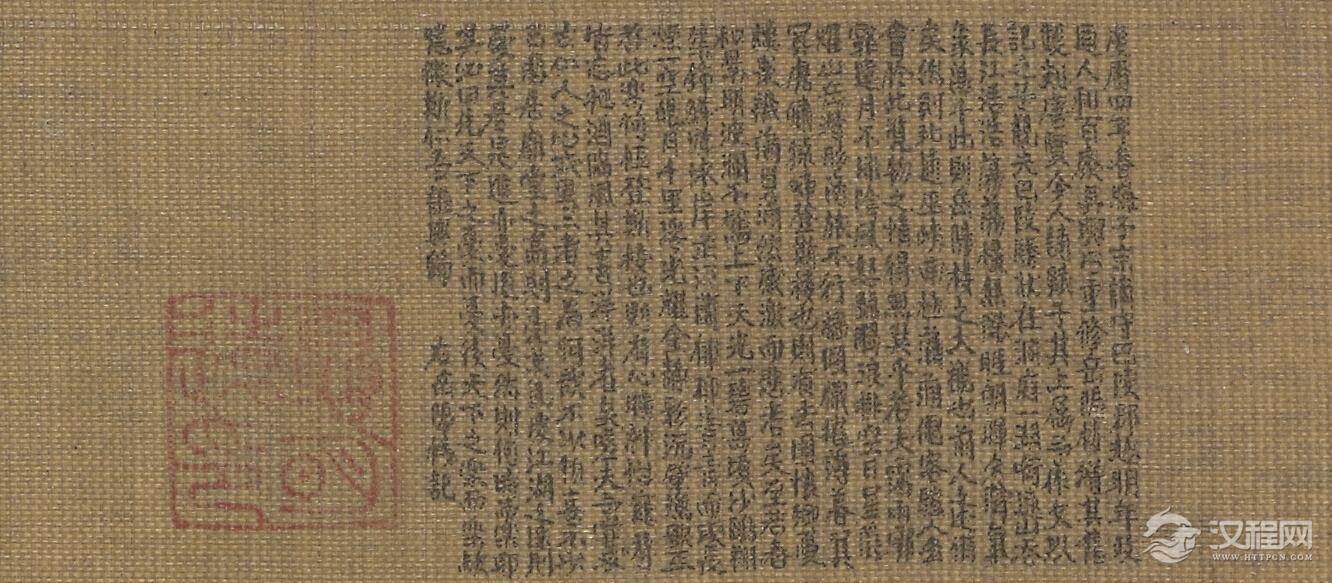 慶曆四年春滕子京謫守巴陵郡越明年政
通人和百廢具興乃重修岳陽樓增其舊
製刻唐賢今人詩賦于其上屬予作文以
記之予觀夫巴陵勝狀在洞庭一湖啣遠山吞
長江浩浩蕩蕩橫無際涯朝暉夕陰氣
象萬千此則岳陽樓之大觀也前人之述備
矣然則北通巫峽南極瀟湘遷客騷人多
會於此覽物之情得無異乎若夫霪雨霏
霏連月不開陰風怒號濁浪排空日星隱
曜山岳潛形商旅不行檣傾楫摧薄暮冥
冥虎嘯猿啼登斯樓也則有去國懷鄉憂
讒畏譏滿目蕭然感激而悲者矣至若春
和景明波瀾不驚上下天光一碧萬頃沙鷗翔
集錦鱗游泳岸芷汀蘭郁郁青青而或長
煙一空皓月千里浮光耀金靜影沉璧漁歌互
答此樂何極登斯樓也則有心曠神怡寵辱
皆忘把酒臨風其喜洋洋者矣嗟夫予嘗求
古仁人之心或異二者之為何哉不以物喜不以
己悲居廟堂之高則憂其民處江湖之遠則
憂其君是進亦憂退亦憂然則何時而樂耶
其必曰先天下之憂而憂後天下之樂而樂歟
噫微斯人吾誰與歸 右岳陽樓記
汉程网
WWW.HTTPCN.COM